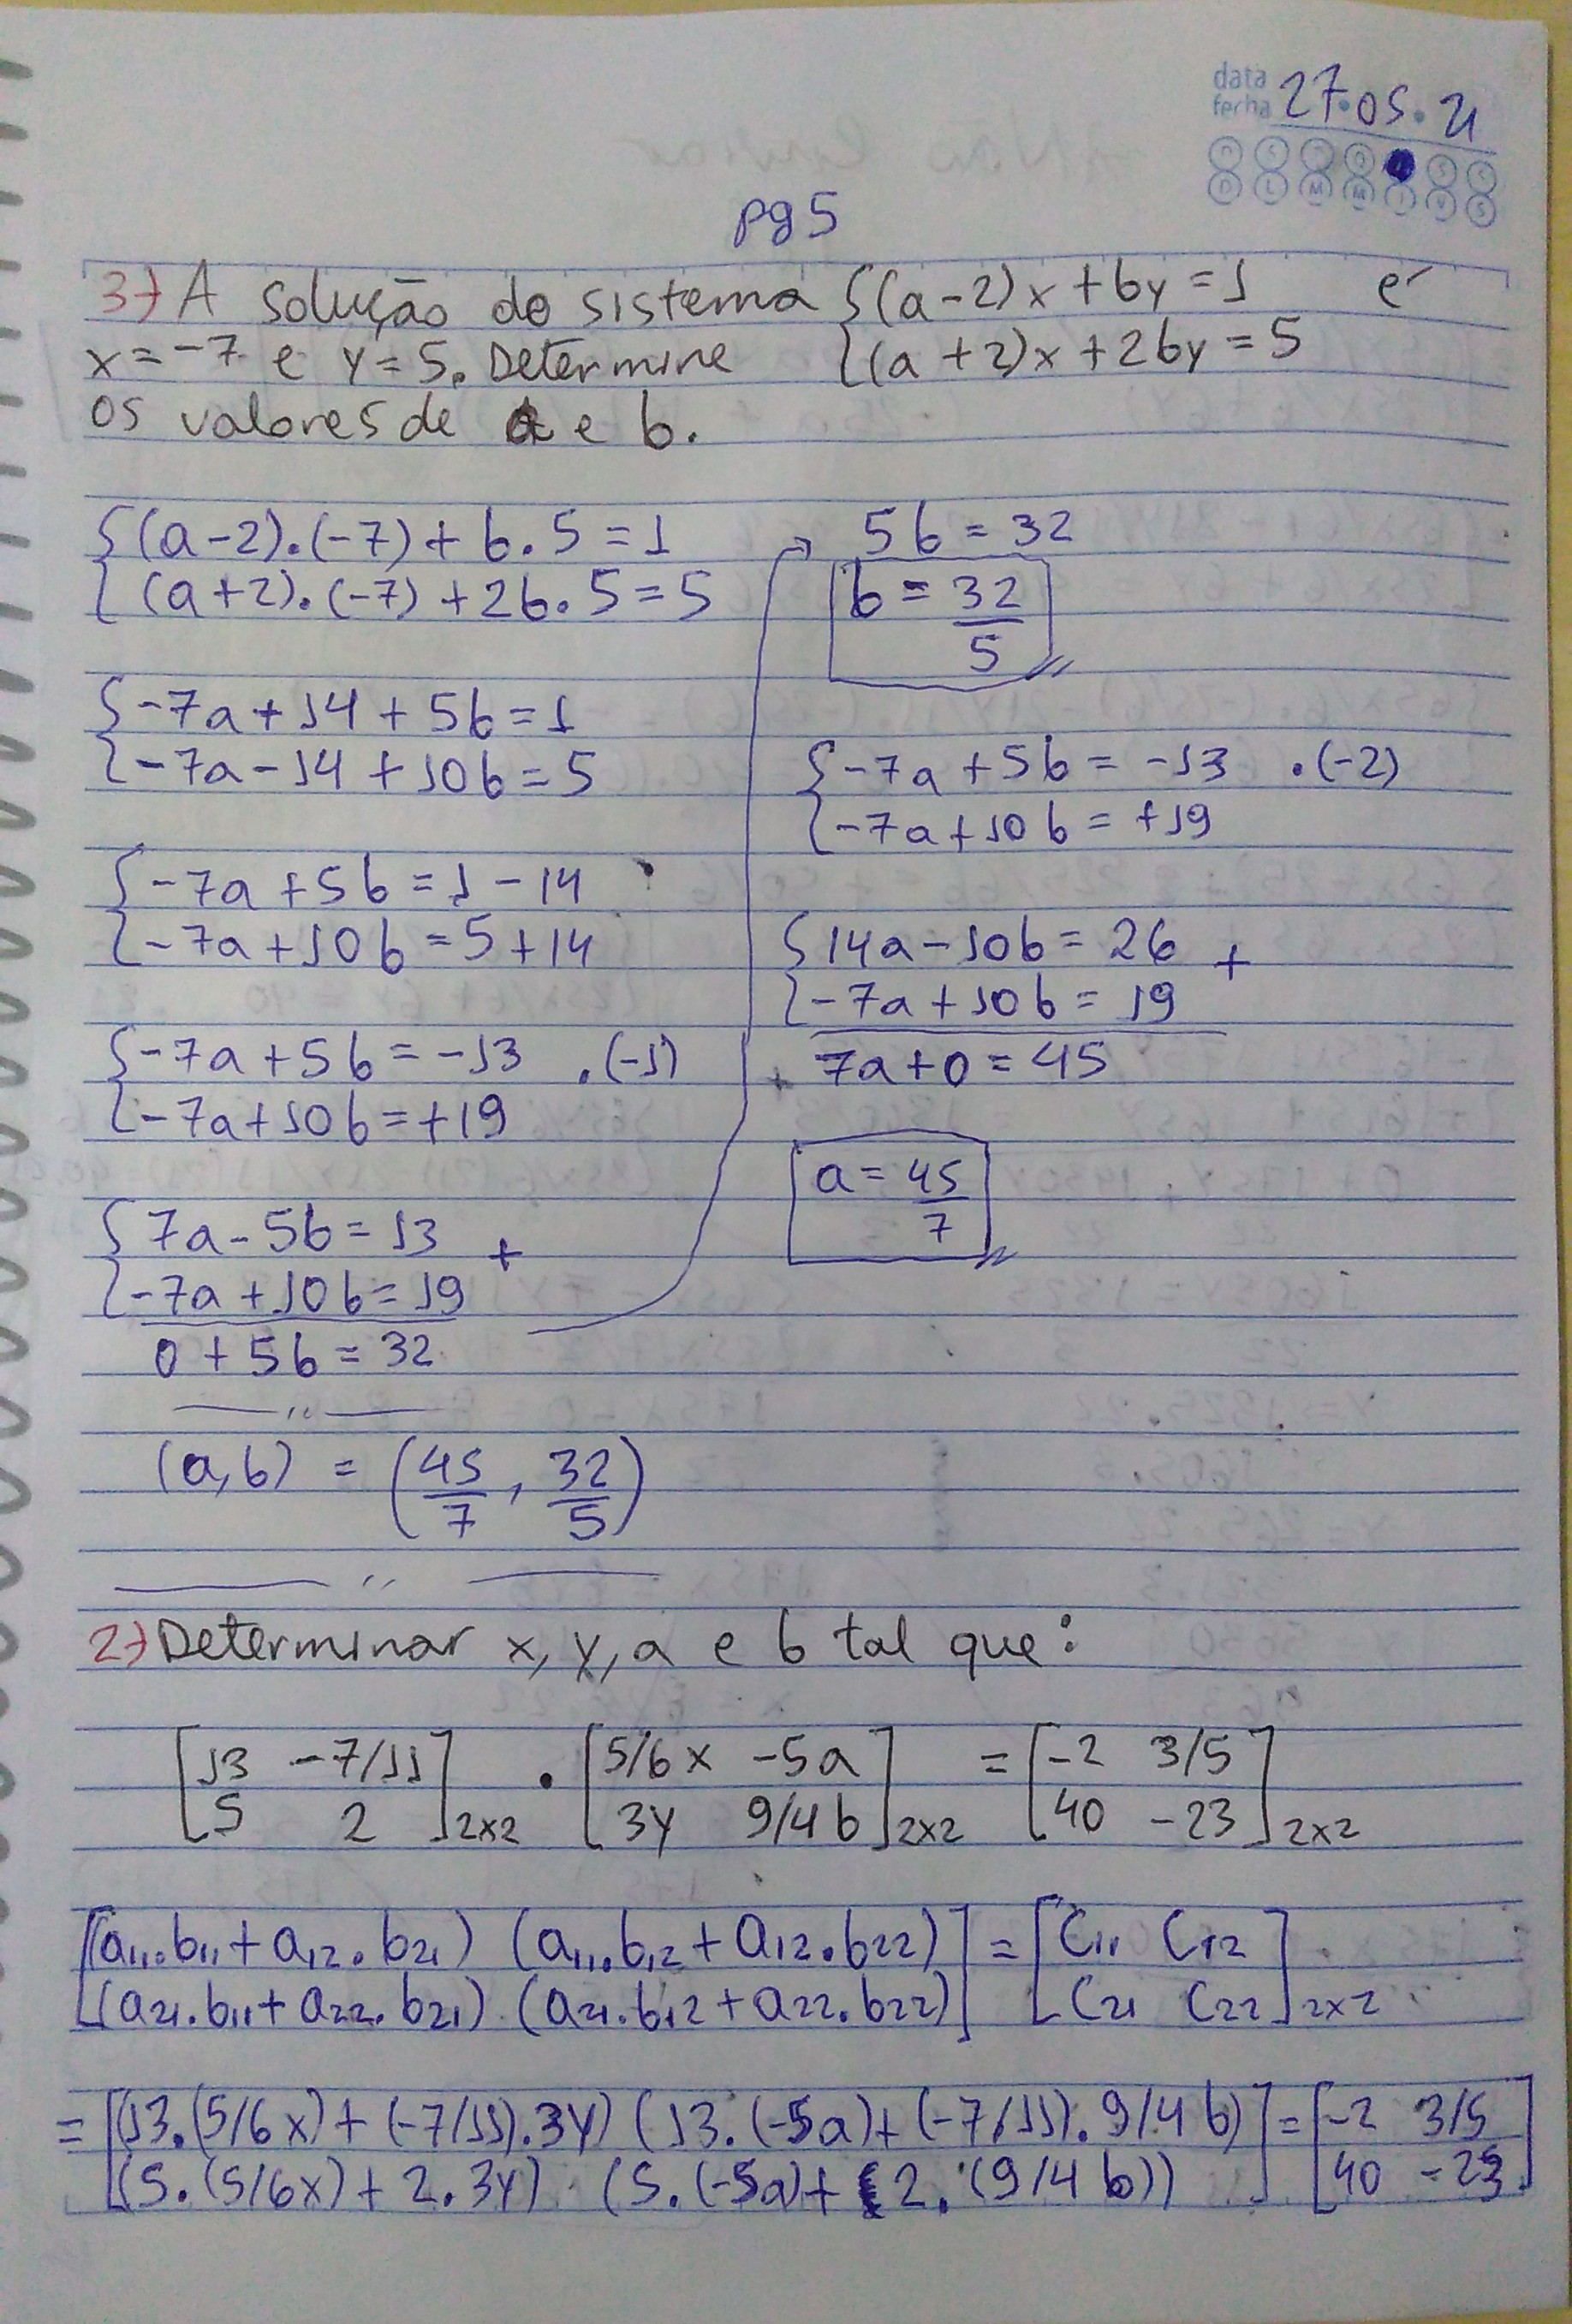 data
fecha 27.05.21
D S T Q Q S S
D L M M J V S
pg 5
3) A solução do sistema {(a-2)x+by=1 é
x=-7 e y=5. Determine {(a+2)x+2by=5
os valores de a e b.
{(a-2).(-7)+b.5=1
{(a+2).(-7)+2b.5=5
{-7a+14+5b=1
{-7a-14+10b=5
{-7a+5b=1-14
{-7a+10b=5+14
{-7a+5b=-13 .(-1)
{-7a+10b=+19
{7a-5b=13 +
{-7a+10b=19
0+5b=32
→ 5b=32
b=32/5
{-7a+5b=-13 .(-2)
{-7a+10b=+19
{14a-10b=26 +
{-7a+10b=19
+7a+0=45
a=45/7
(a,b) = (45/7, 32/5)
2) Determinar x, y, a e b tal que:
[13 -7/11] . [5/6x -5a] = [-2 3/5]
[5 2]2x2 [3y 9/4b]2x2 [40 -23]2x2
[(a11.b11+a12.b21) (a11.b12+a12.b22)] = [C11 C12]
[(a21.b11+a22.b21) (a21.b12+a22.b22)] [C21 C22]2x2
= [(13.(5/6x)+(-7/11).3y) (13.(-5a)+(-7/11).9/4b)] = [-2 3/5]
[(5.(5/6x)+2.3y) (5.(-5a)+2.(9/4b))] [40 -23]